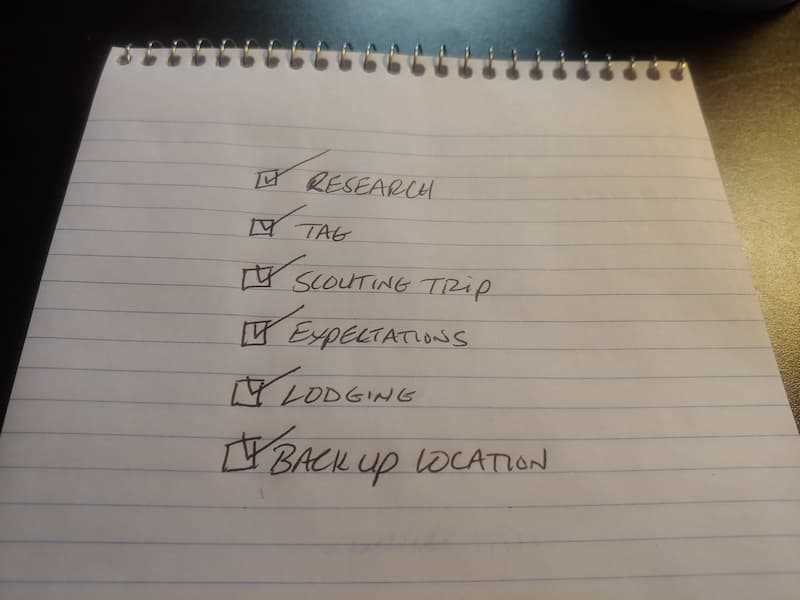 ☑ RESEARCH
☑ TAG
☑ SCOUTING TRiP
☑ EXPECTATIONS
☑ LODGING
☑ BACK UP LOCATION